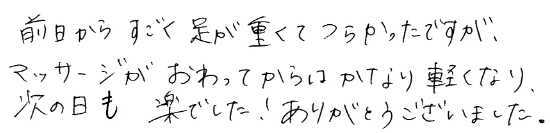 前日からすごく足が重くてつらかったですが、
マッサージがおわってからはかなり軽くなり、
次の日も楽でした！ありがとうございました。